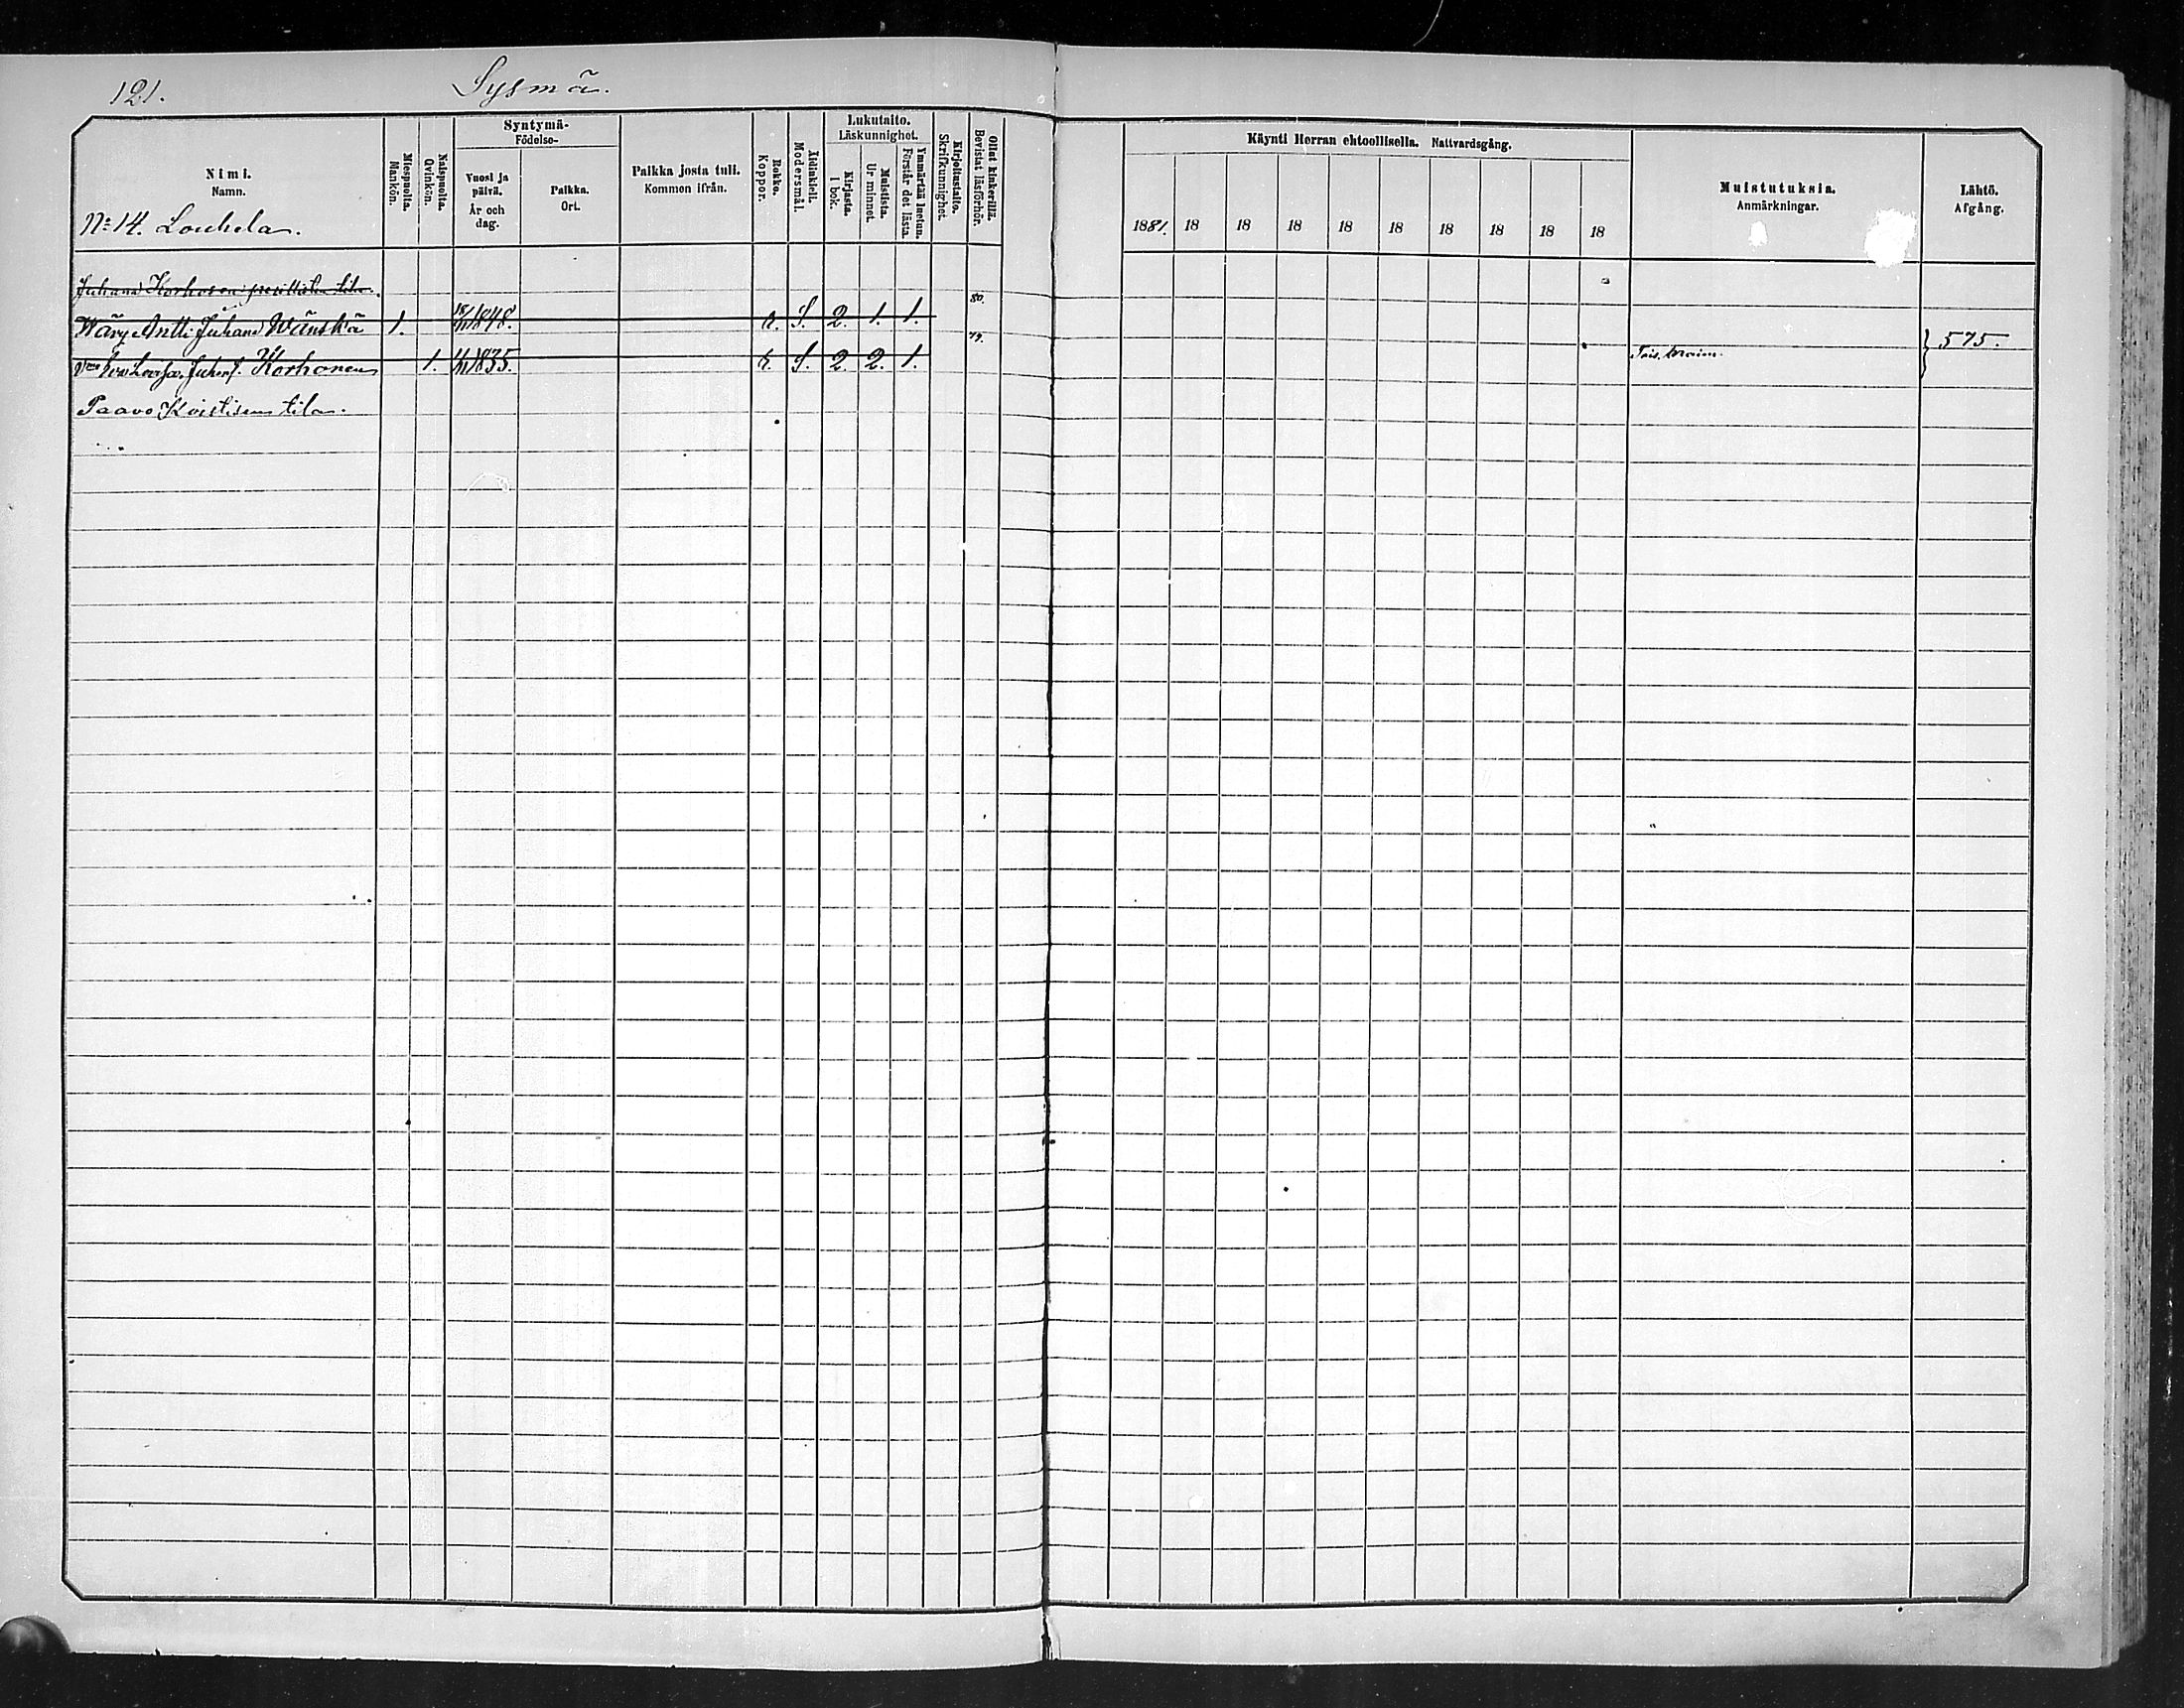 121.
Sysmä.
Nimi.
Namn.
Miespuolta.
Mankön.
Naispuolta.
Qvinkön.
Syntymä-
Födelse-
Vuosi ja
päivä.
År och
dag.
Paikka.
Ort.
Paikka josta tuli.
Kommen ifrån.
Rokko.
Koppor.
Äidinkieli.
Modersmål.
Lukutaito.
Läskunnighet.
Kirjasta.
I bok.
Muistista.
Ur minnet.
Ymmärtää luetun.
Förstår det lästa.
Kirjoitustaito.
Skrifkunnighet.
Ollut kinkerillä.
Bevistat läsförhör.
Käynti Herran ehtoollisella. Nattvardsgång.
1881. 18 18 18 18 18 18 18 18 18
Muistutuksia.
Anmärkningar.
Lähtö.
Afgång.
No 14. Louhela.
Juhana Korhosen perillisten tila.
Wävy Antti Juhana Wänskä 1. 1848. r. S. 2. 1. 1. 80.
Eva Lovisa Juhont. Korhonen 1. 1835. r. S. 2. 2. 1. 79. 575.
Paavo Koistisen tila.